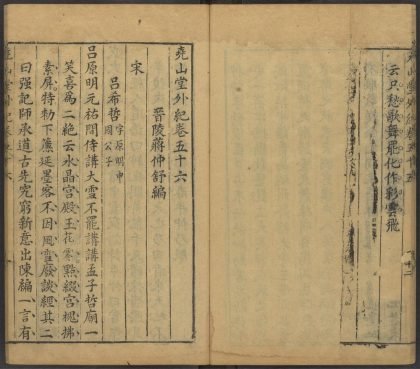 云只愁歌舞罷化作彩雲飛
堯山堂外紀卷五十六
晉陵蔣仲舒編
宋
呂希哲
字原明申
國公子
呂原明元祐間侍講大雪不罷講講孟子哲廟一
笑喜為二絶云水晶宮殿玉花零點綴宮槐拂
素屏特勅下簾延墨客不因風雪廢談經其二
曰强記師承道古先究窮新意出陳編一言有